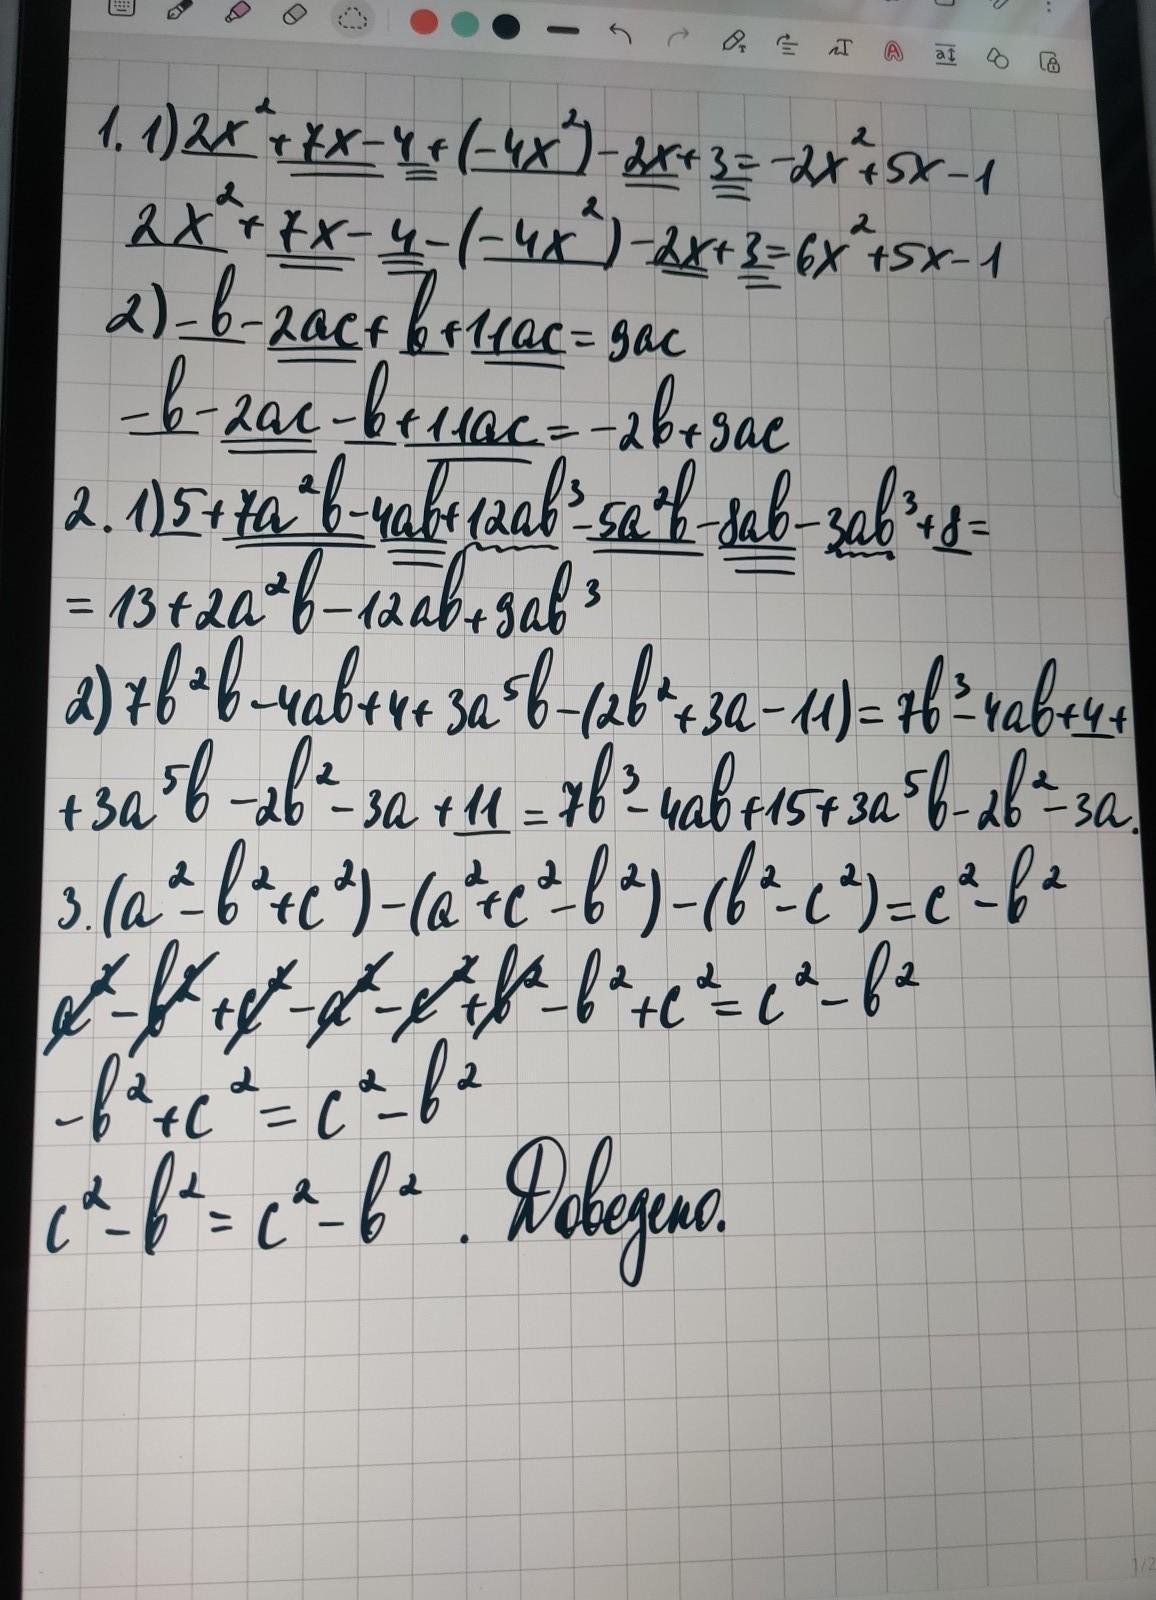 1. 1) 2x² + 7x - 4 + (-4x²) - 2x + 3 = -2x² + 5x - 1
2x² + 7x - 4 - (-4x²) - 2x + 3 = 6x² + 5x - 1
2) -b - 2ac + b + 11ac = 9ac
-b - 2ac - b + 11ac = -2b + 9ac
2. 1) 5 + 7a²b - 4ab + 12ab³ - 5a²b - 8ab - 3ab³ + 8 =
= 13 + 2a²b - 12ab + 9ab³
2) 7b²b - 4ab + 4 + 3a⁵b - (2b² + 3a - 11) = 7b³ - 4ab + 4 +
+ 3a⁵b - 2b² - 3a + 11 = 7b³ - 4ab + 15 + 3a⁵b - 2b² - 3a.
3. (a² - b² + c²) - (a² + c² - b²) - (b² - c²) = c² - b²
a² - b² + c² - a² - c² + b² - b² + c² = c² - b²
-b² + c² = c² - b²
c² - b² = c² - b². Доведено.
1/2